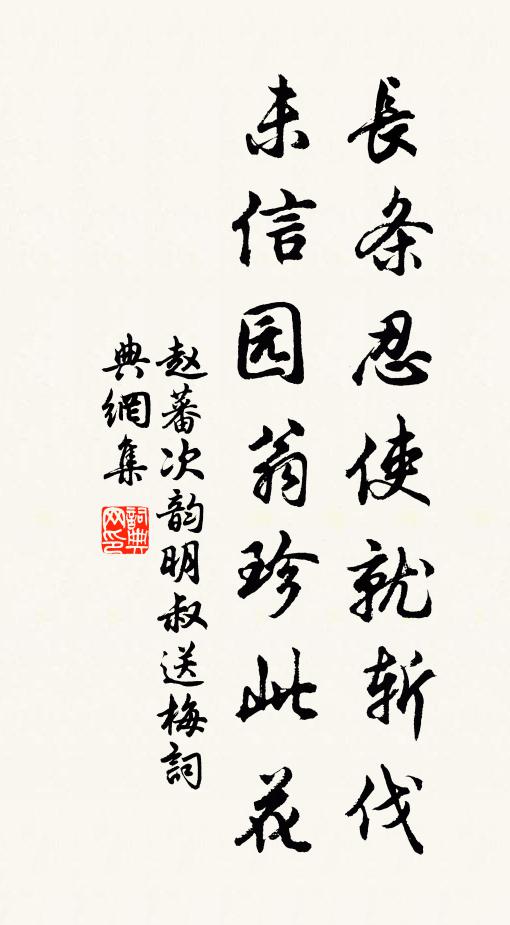 長条忍使就斩伐
未信园翁珍此花
赵蕃次韵明叔送梅詞
典網集
詞典网印